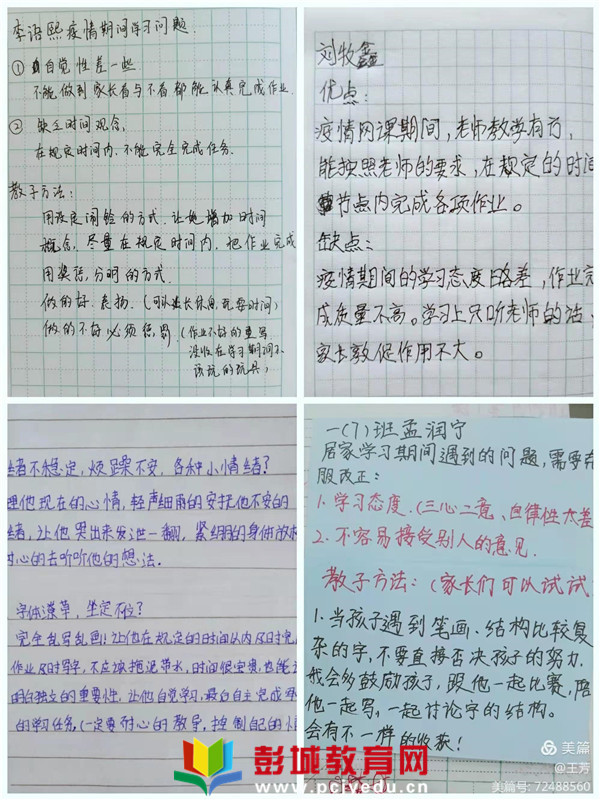 李语熙疫情期间学习问题
① 自觉性差一些
不能做到家长看与不看都能认真完成作业
② 缺乏时间观念,
在规定时间内.不能完全完成任务.
教子方法:
用改良闹铃的方式.让她增加时间
概念,尽量在规定时间内.把作业完成
用奖惩,分明的方式.
做的好.表扬.(可以延长休息,玩耍时间)
做的不好必须惩罚.(作业不好的重写.
没收在学习期间不
该玩的玩具)
刘牧鑫
优点:
疫情网课期间,老师教学有方,
能按照老师的要求,在规定的时间
节点内完成各项作业。
缺点:
疫情期间的学习态度略差,作业完
成质量不高。学习上只听老师的话,
家长敦促作用不大。
绪不稳定,烦躁不安.各种小情绪?
理他现在的心情,轻声细雨的安抚他不安的
绪,让他哭出来发泄一翻,紧绷的身体放松
耐心的去听听他的想法.
字体潦草,坐定不住?
完全乱写乱画!让他在规定的时间以内及时完
作业及时写字,不应该拖泥带水,时间很宝贵,也能
明白独立的重要性,让他自觉学习,最后自主完成
的学习任务,(一定要耐心的教导,控制自己的情
一(7)班孟润宁
居家学习期间遇到的问题,需要克
服改正:
1.学习态度.(三心二意、自律性太差
2.不容易接受别人的意见.
教子方法:(家长们可以试试
1.当孩子遇到笔画、结构比较复
杂的字,不要直接否决孩子的努力.
我会多鼓励孩子,跟他一起比赛,陪
他一起写,一起讨论字的结构。
会有不一样的收获!
彭城教育网
www.pcjyedu.cn
美篇
@王芳
美篇号: 72488560